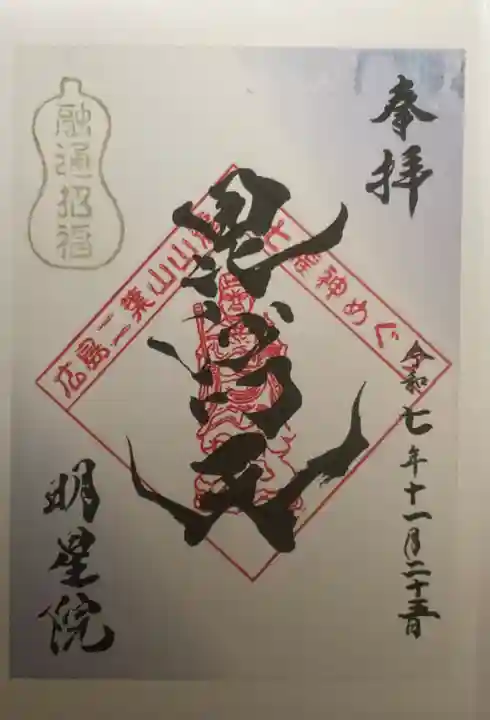 奉拝
令和七年十一月二十五日
毘沙門天
広島二葉山山麓七福神めぐり
融通招福
明星院